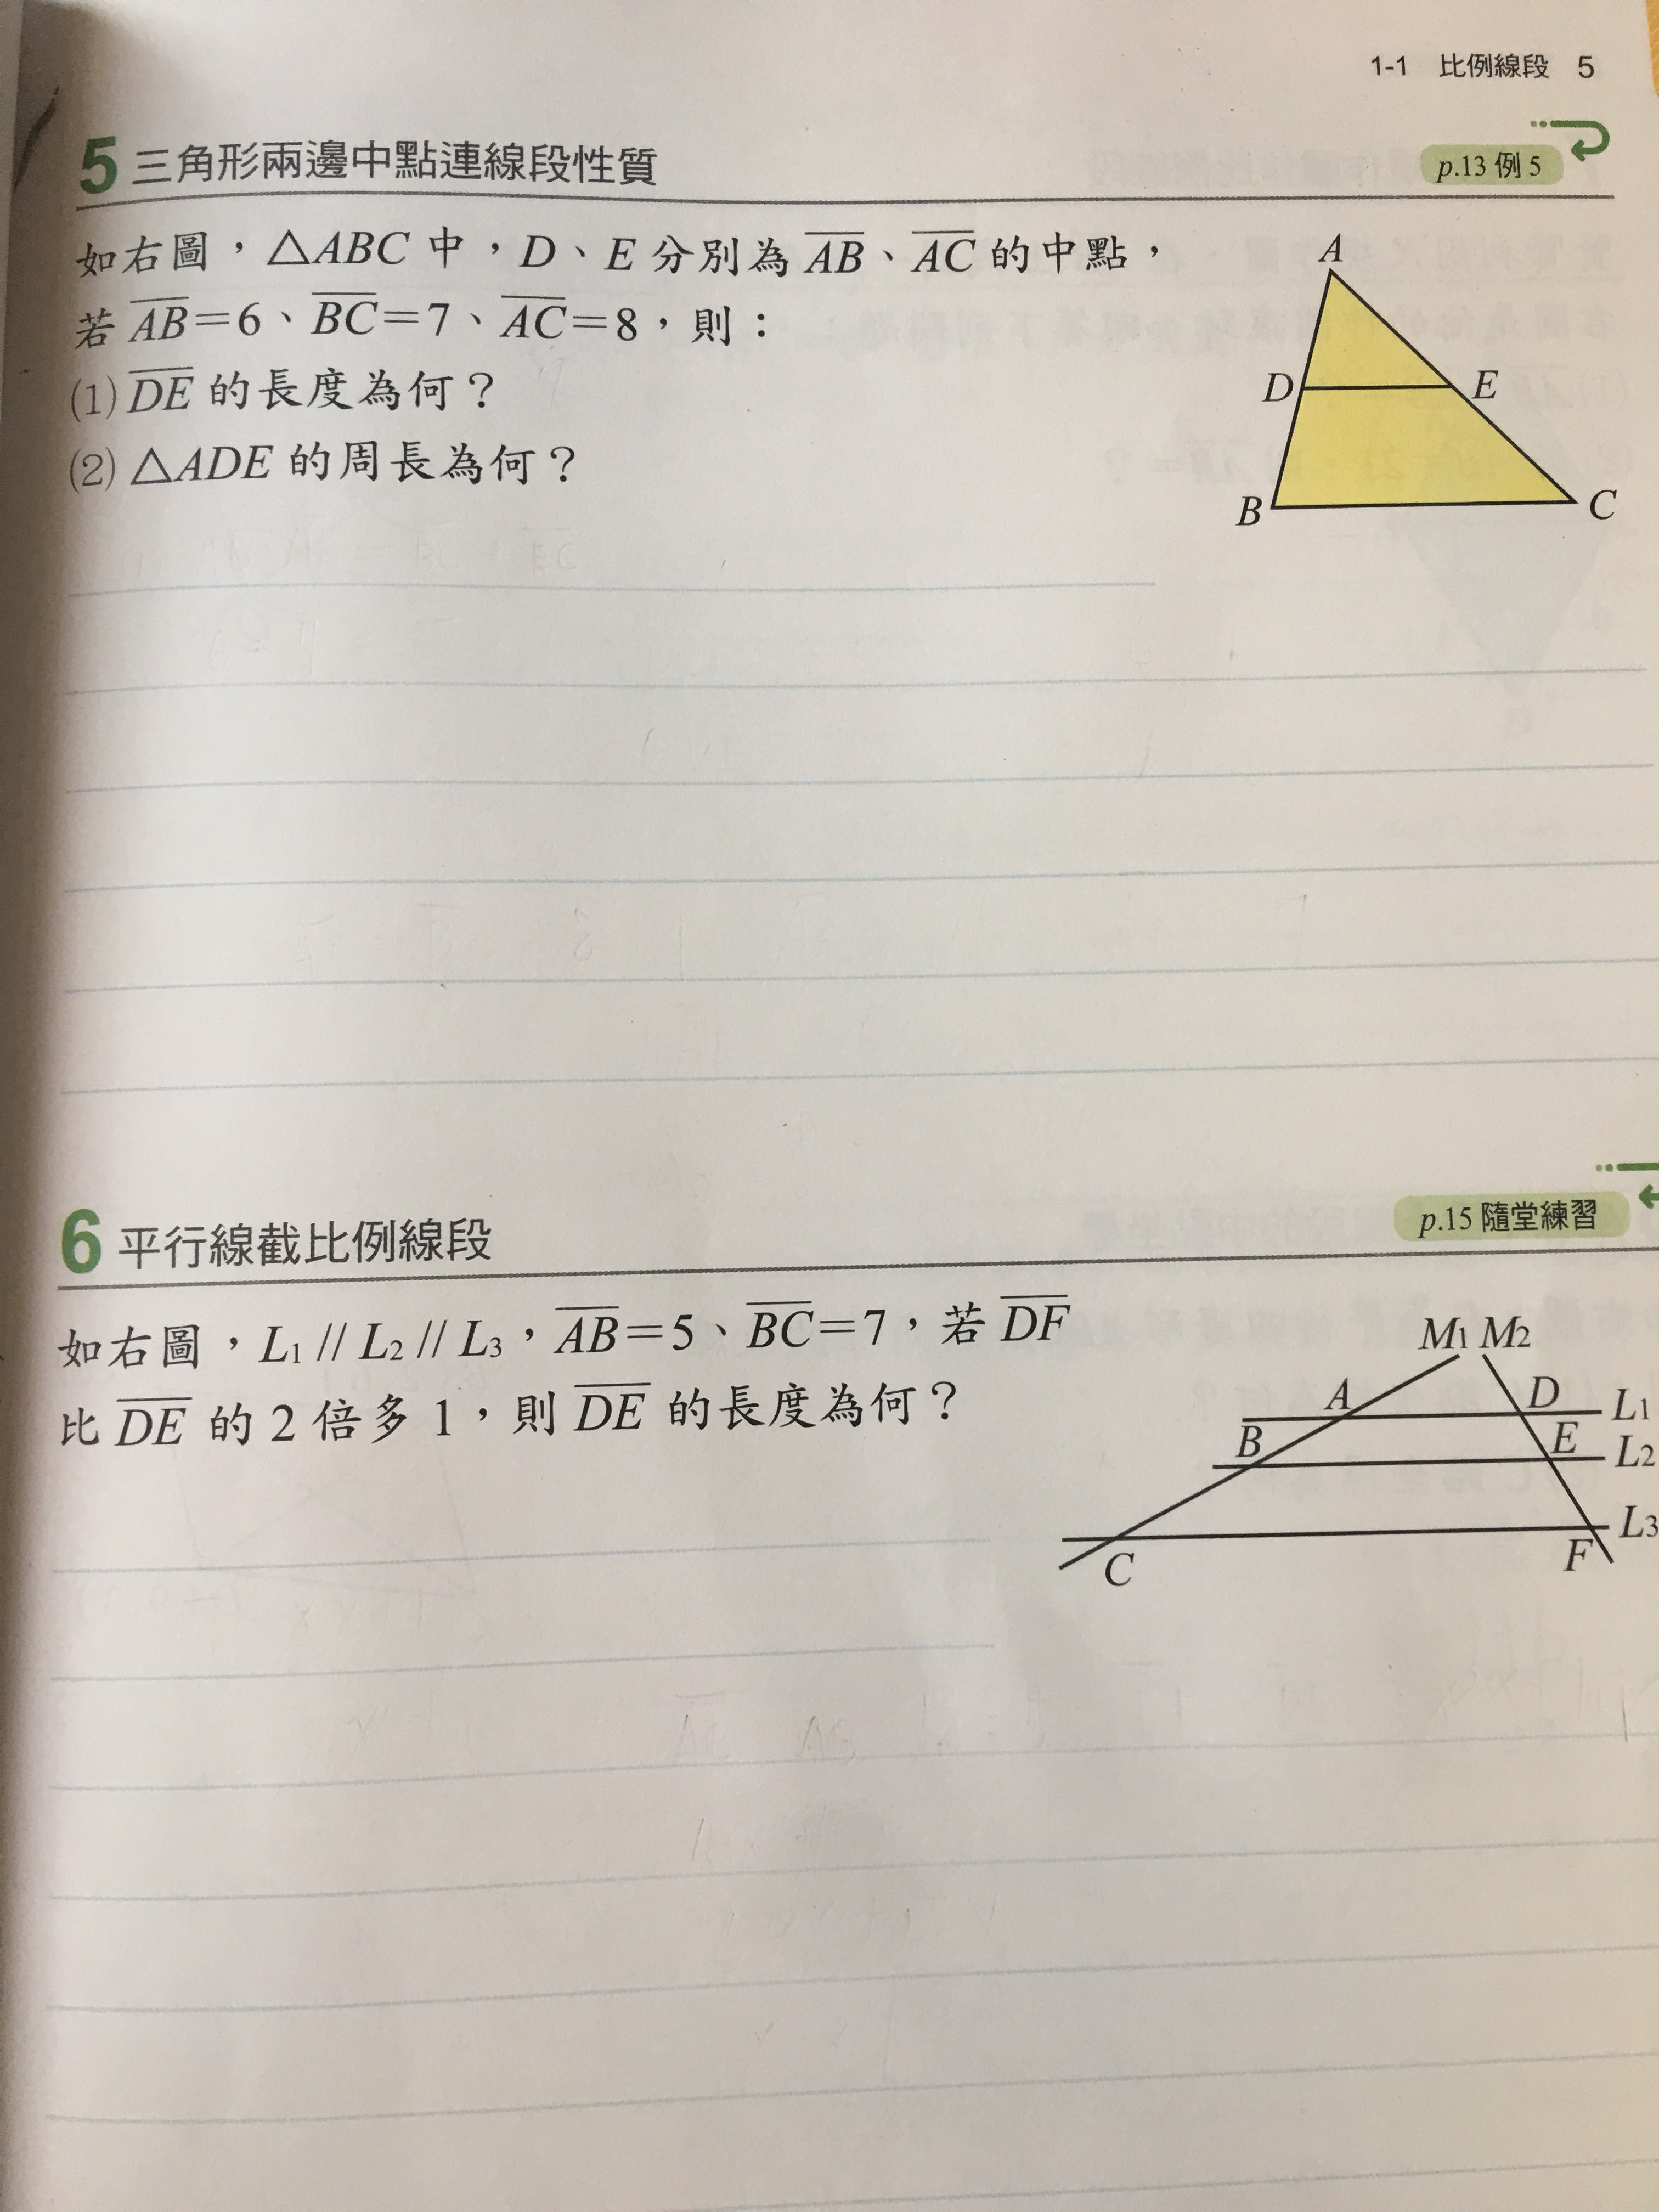 1-1 比例線段 5
5 三角形兩邊中點連線段性質
p.13 例 5
如右圖，△ABC 中，D、E 分別為 AB、AC 的中點，
若 AB＝6、BC＝7、AC＝8，則：
(1) DE 的長度為何？
(2) △ADE 的周長為何？
A
D
E
B
C
6 平行線截比例線段
p.15 隨堂練習
如右圖，L1 // L2 // L3，AB＝5、BC＝7，若 DF
比 DE 的 2 倍多 1，則 DE 的長度為何？
M1 M2
A
D
L1
B
E
L2
L3
C
F